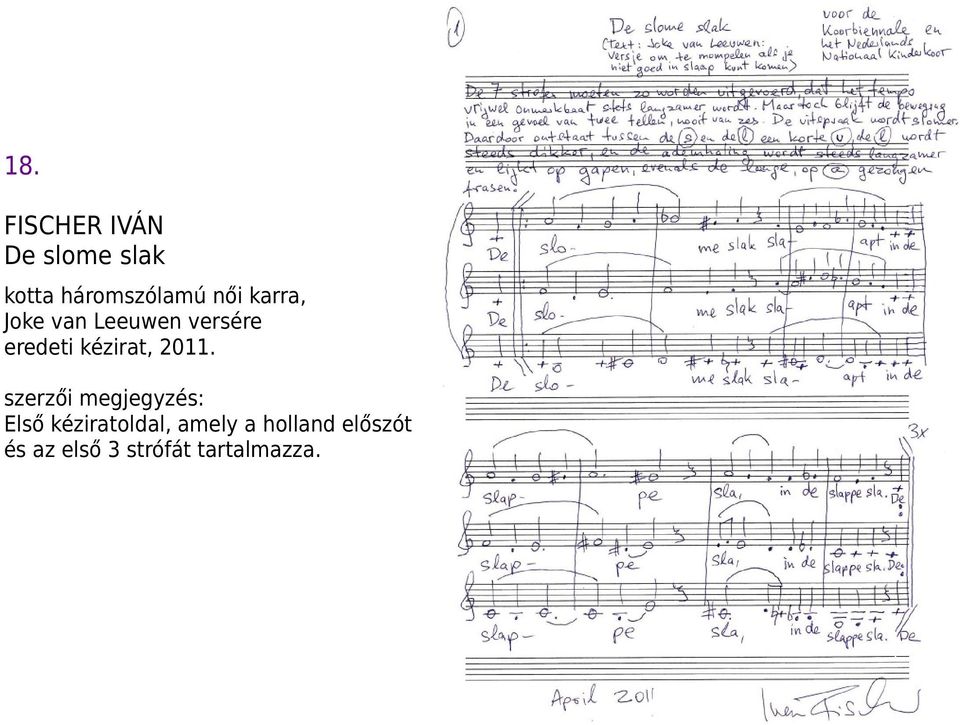 18.
FISCHER IVÁN
De slome slak
kotta háromszólamú női karra,
Joke van Leeuwen versére
eredeti kézirat, 2011.
szerzői megjegyzés:
Első kéziratoldal, amely a holland előszót
és az első 3 strófát tartalmazza.
1
De slome slak
(text: Joke van Leeuwen:
versje om te mompelen als je
niet goed in slaap kunt komen)
voor de
Koorbiennale en
het Nederlands
Nationaal Kinderkoor
De 7 strofen moeten zo worden uitgevoerd, dat het tempo
vrijwel onmerkbaar steds langzamer wordt. Maar toch blijft de beweging
in een gevoel van twee tellen, nooit van zes. De uitspraak wordt slomer.
Daardoor ontstaat tussen de s en de l een korte v, de l wordt
steeds dikker, en de ademhaling wordt steeds langzamer
en lijkt op gapen, evenals de lange, op a gezongen
frasen.
De slo- me slak sla- apt in de
De slo- me slak sla- apt in de
De slo- me slak sla- apt in de
3x
slap- pe sla, in de slappe sla. De
slap- pe sla, in de slappe sla. De
slap- pe sla, in de slappe sla. De
April 2011
Ivan Fischer